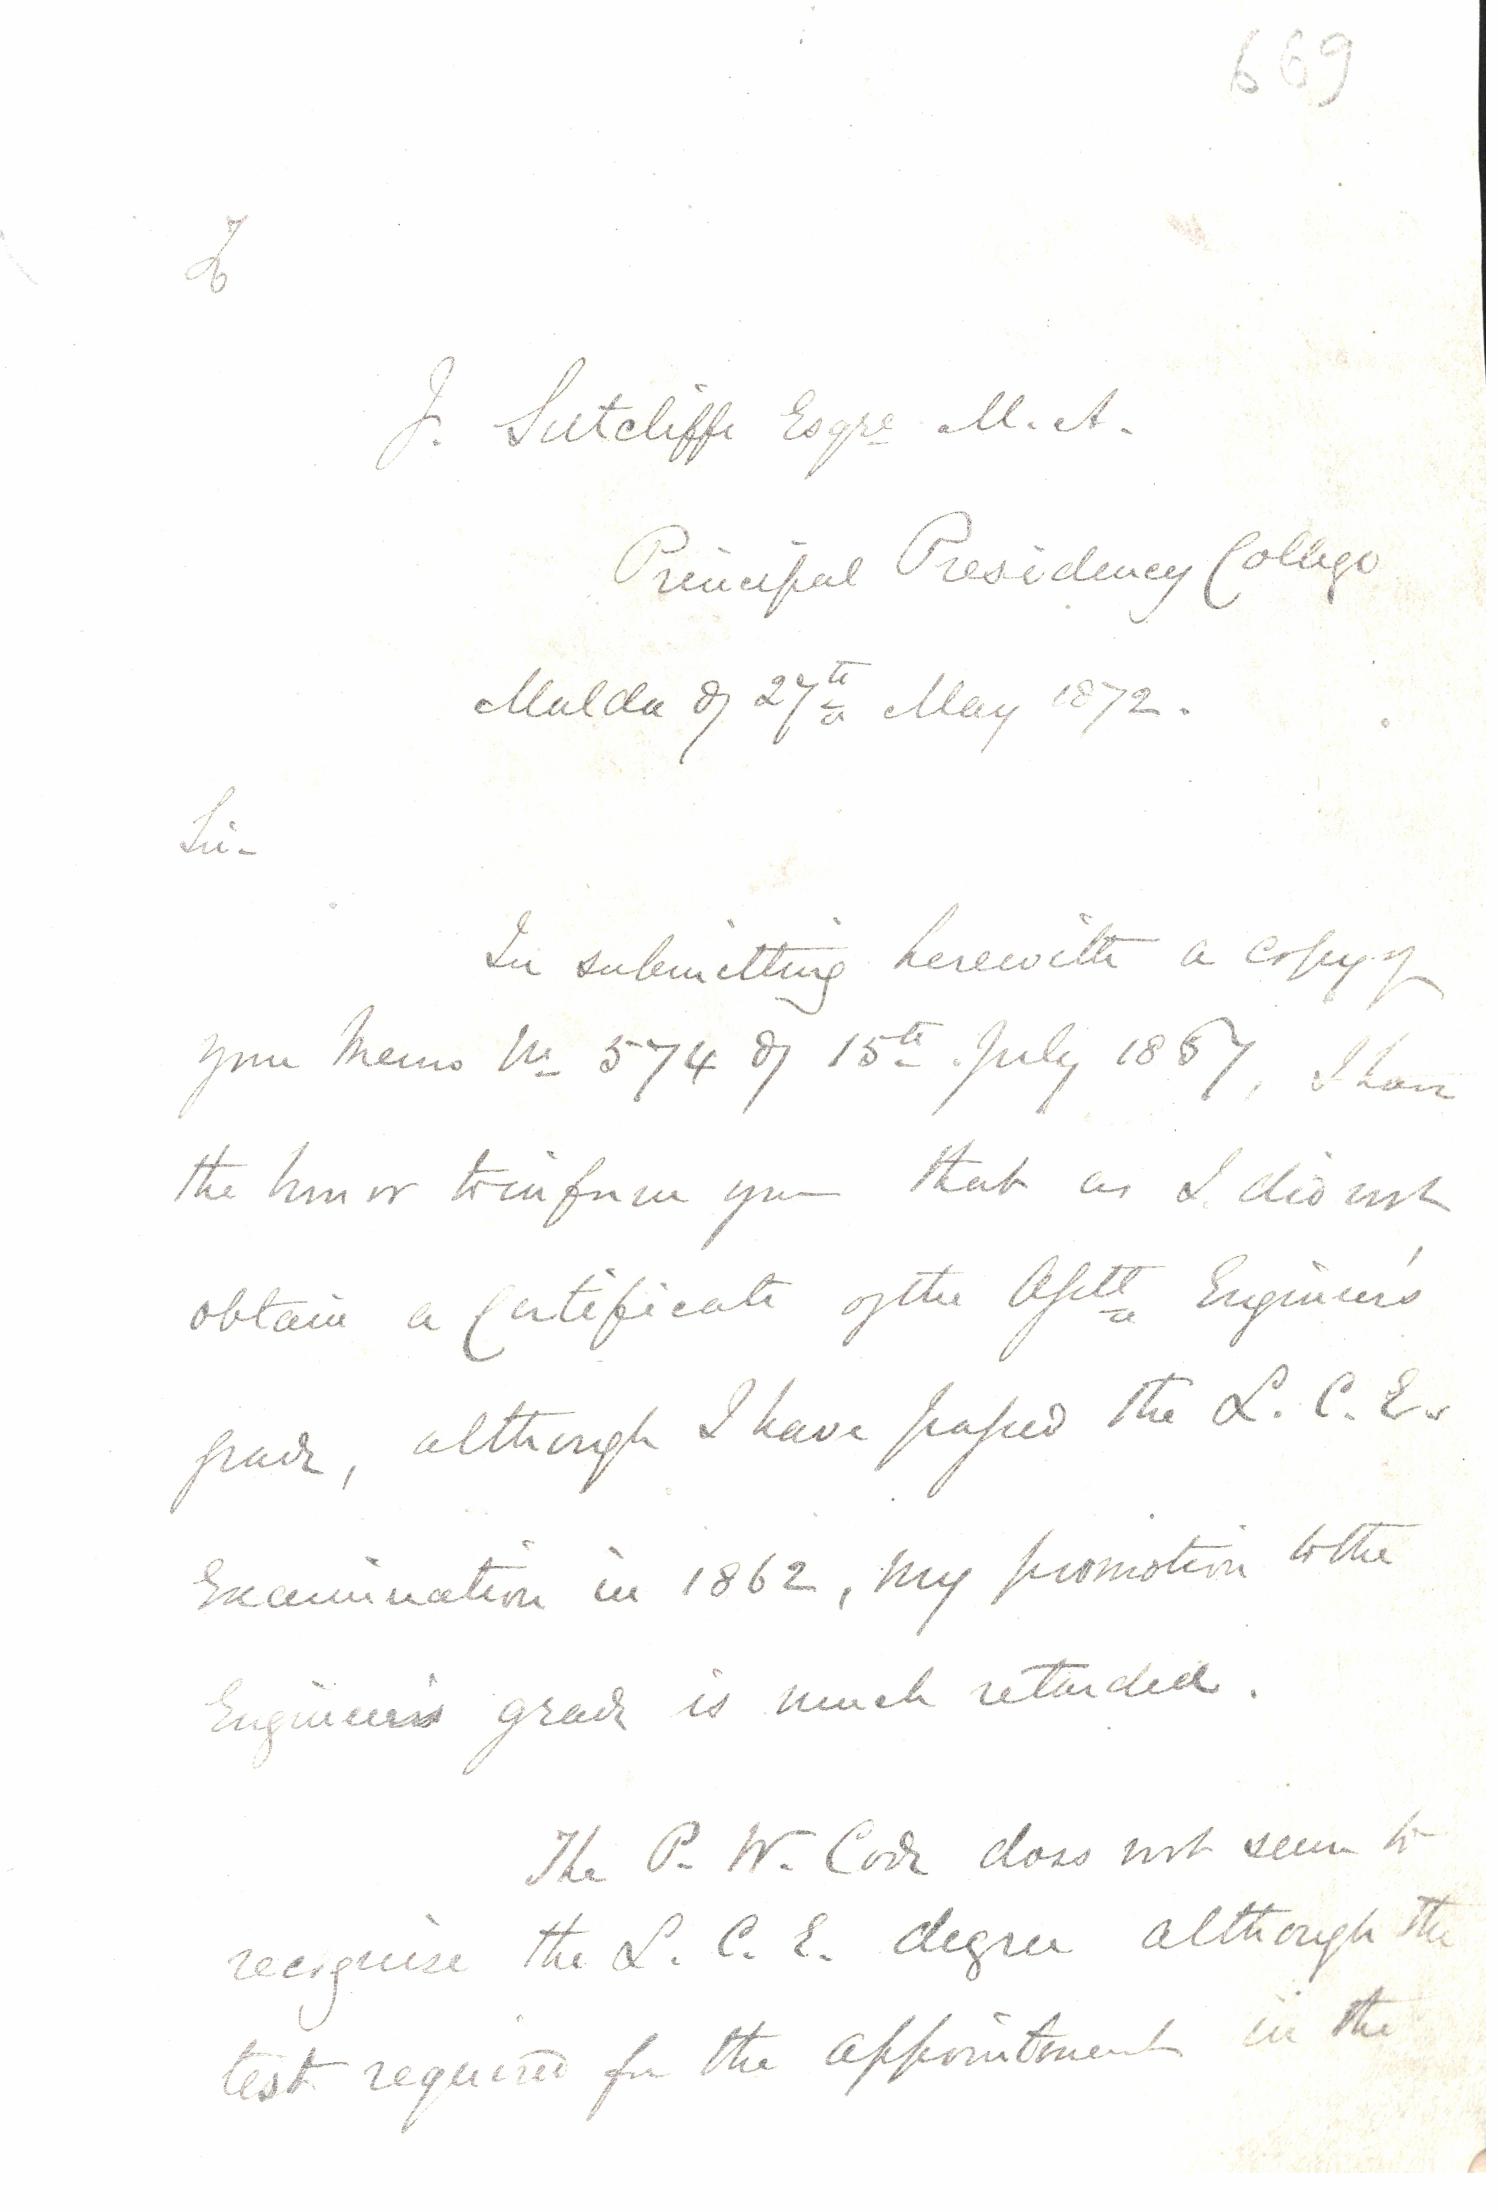 669
To
J. Sutcliffe Esqre M. A.
Principal Presidency College
Malda 27th May 1872.
Sir-
In submitting herewith a copy of
your Memo No 574 of 15th July 1867, I have
the honor to inform you that as I did not
obtain a Certificate of the Asstt Engineer's
grade, although I have passed the L. C. E.
Examination in 1862, my promotion to the
Engineer's grade is much retarded.
The P. W. Code does not seem to
recognise the L. C. E. degree although the
test required for the appointment in the